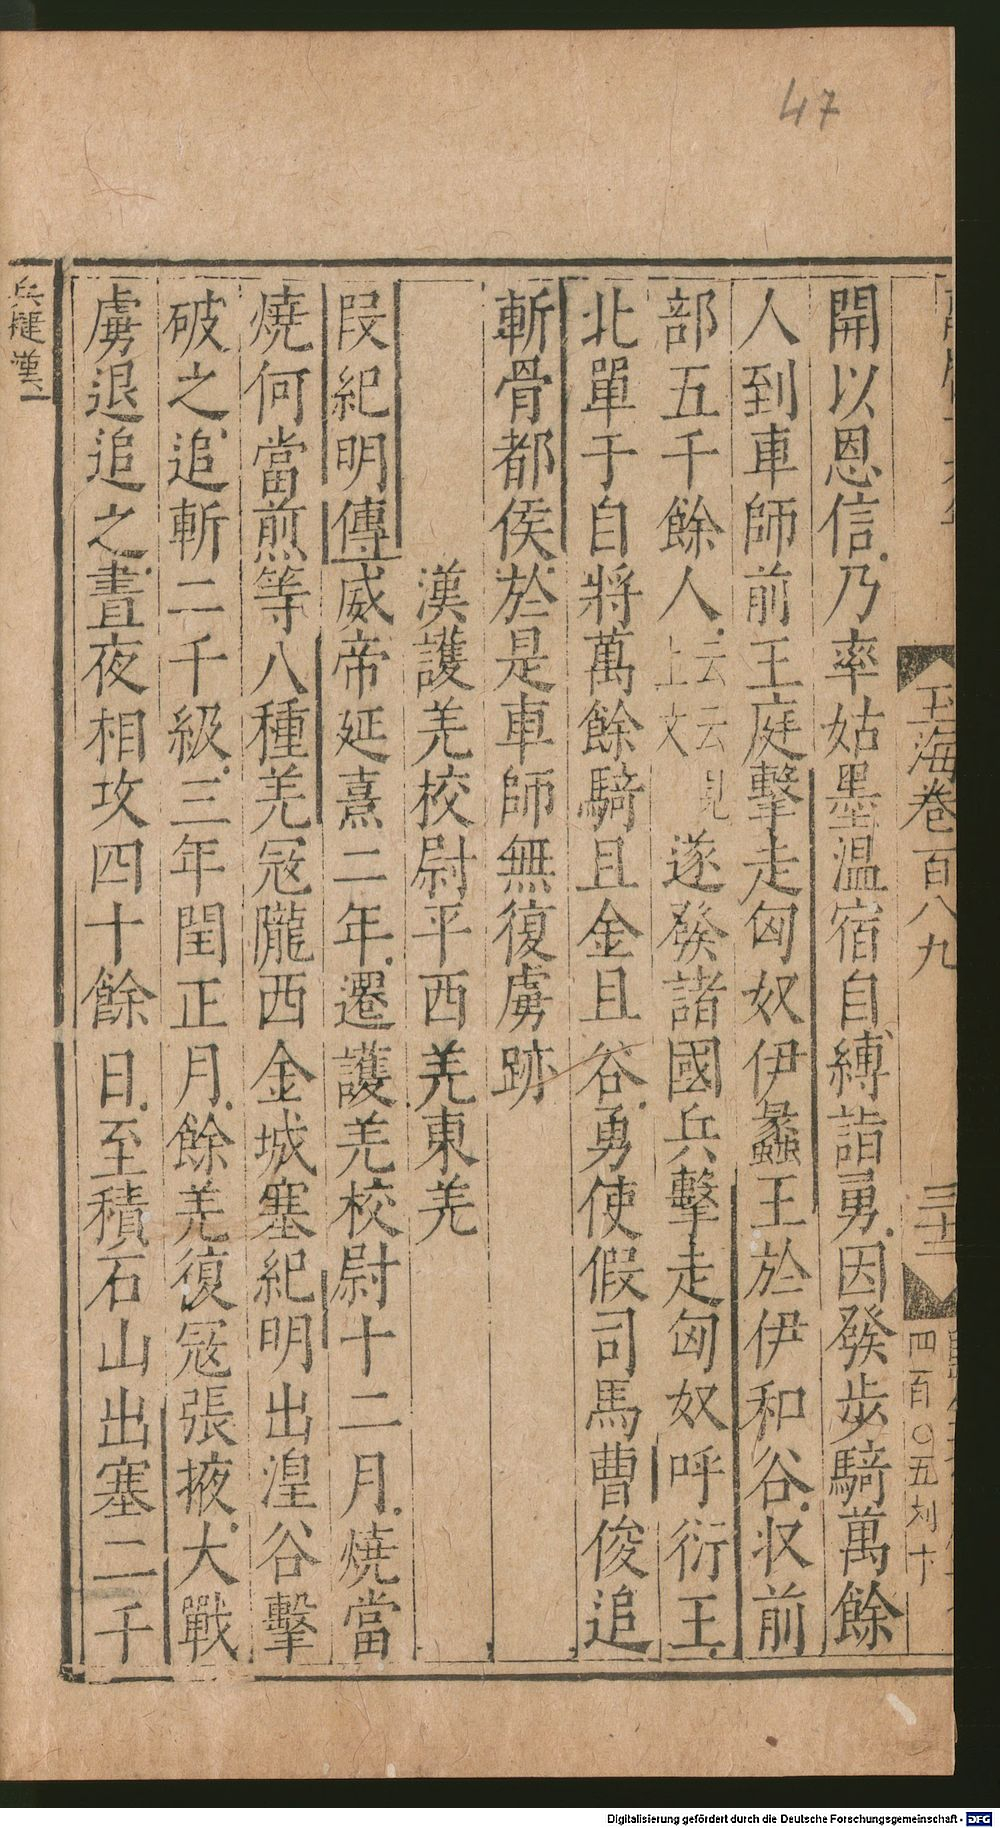 47
玉海卷百八九
三十二
四百〇五刘十
開以恩信乃率姑墨温宿自縛詣勇因發步騎萬餘
人到車師前王庭擊走匈奴伊蠡王於伊和谷收前
部五千餘人云云見上文遂發諸國兵擊走匈奴呼衍王
北單于自將萬餘騎且金且谷勇使假司馬曹俊追
斬骨都侯於是車師無復虜跡
漢護羌校尉平西羌東羌
段紀明傳威帝延熹二年遷護羌校尉十二月燒當
燒何當煎等八種羌寇隴西金城塞紀明出湟谷擊
破之追斬二千級三年閏正月餘羌復寇張掖大戰
虜退追之晝夜相攻四十餘日至積石山出塞二千
兵捷漢二
Digitalisierung gefördert durch die Deutsche Forschungsgemeinschaft - DFG